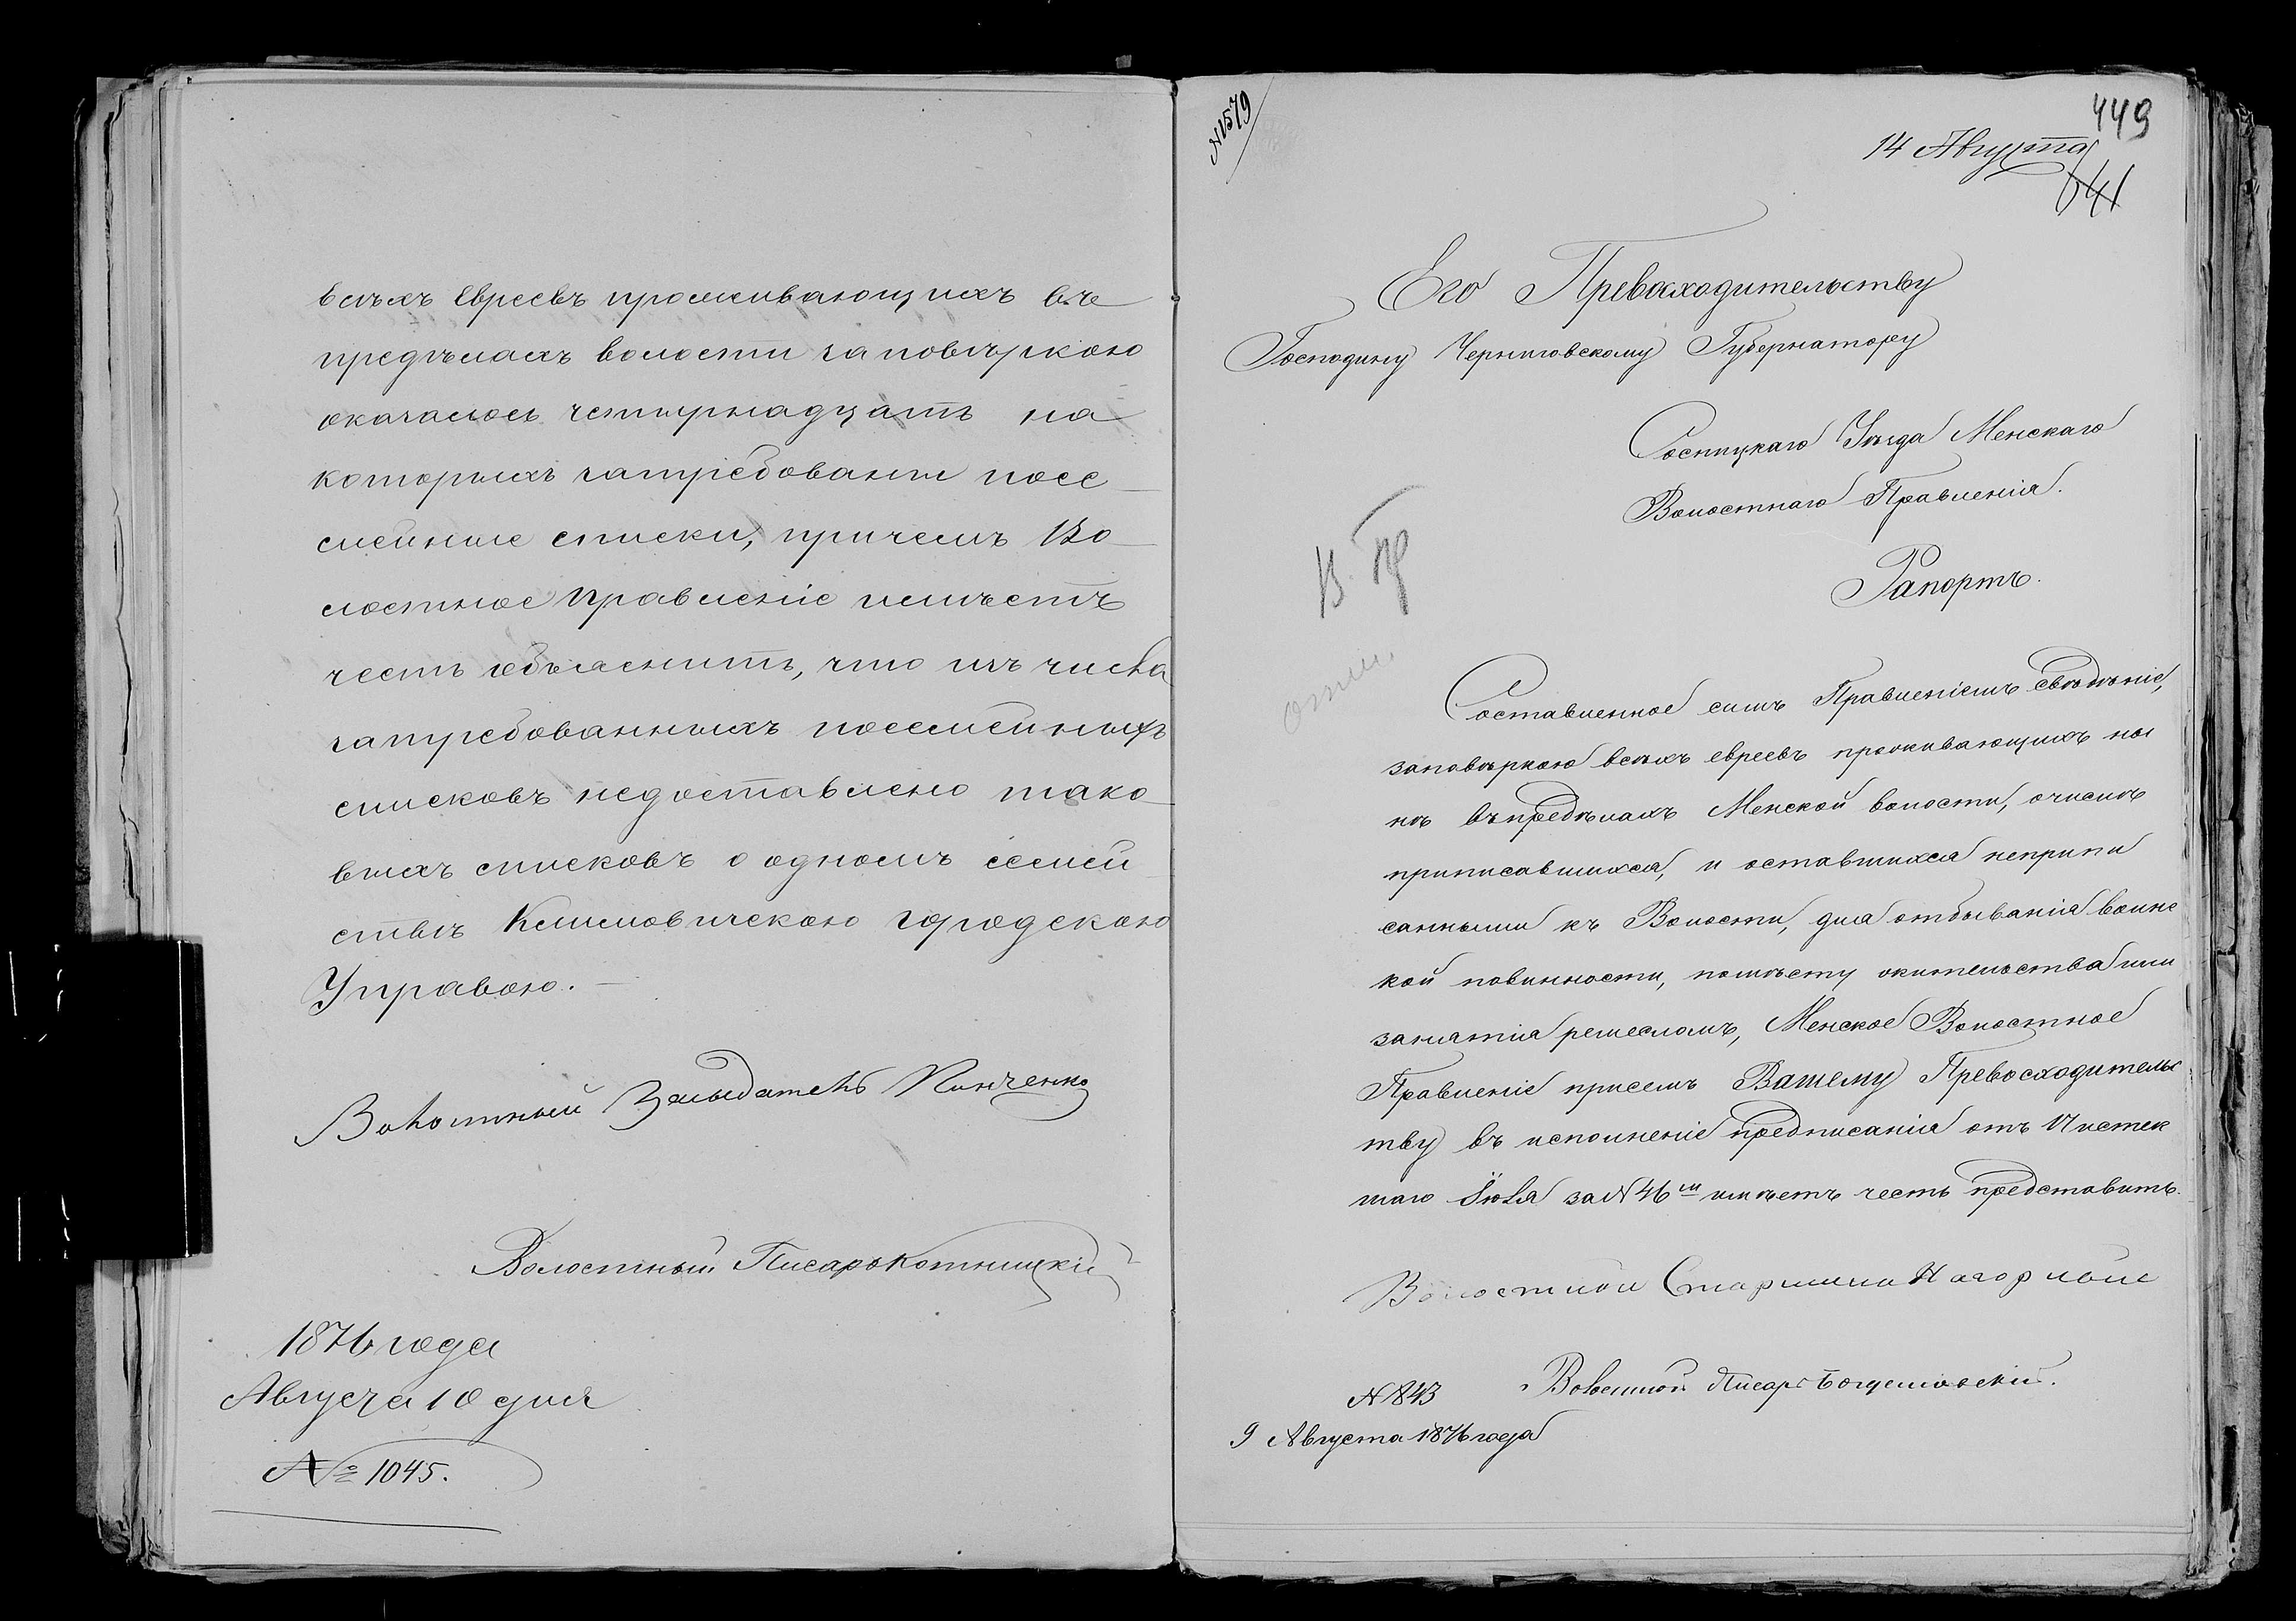 всѣхъ Евреевъ проживающихъ въ
предѣлахъ волости заповѣркою
оказалось четырнадцать на
которыхъ затребованы посе
мейные списки, причемъ Во
лостное Правленіе имѣетъ
честь объяснить, что изъ числа
затребованныхъ посемейныхъ
списковъ недоставлено тако
выхъ списковъ о одномъ семей
ствѣ Климовичскою городскою
Управою.
Волостный Писарь Котницкій
1876 года
Августа 10 дня
№ 1045.
N 1579
449
14 Августа
641
Его Превосходительству
Господину Черниговскому Губернатору
Сосницкаго Уѣзда Менскаго
Волостнаго Правленія.
Рапортъ.
Составленное симъ Правленіемъ свѣдѣніе,
заповѣркою всѣхъ евреевъ проживающихъ ны
нѣ въ предѣлахъ Менской волости, очислѣ
приписавшихся, и оставшихся неприпи
санными къ Волости, для отбыванія воинс
кой повинности, помѣсту жительства или
занятія ремесломъ, Менское Волостное
Правленіе присемъ Вашему Превосходительс
тву въ исполненіе предписанія отъ 17 истек
шаго Іюля за N 46 имѣетъ честь представить.
Волостной Старшина Нагорный
N 843
Волостной Писарь
9 Августа 1876 года